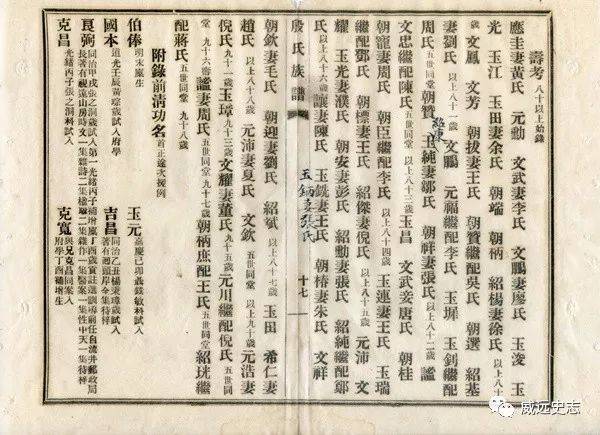 壽考 八十以上始錄
應圭妻黃氏 元勳 文武妻李氏 文鵬妻廖氏 玉浚 玉
光 玉江 玉田妻余氏 朝端 朝柄 紹楊妻徐氏 以上八十
歲 文鳳 文芳 朝拔妻王氏 朝賢繼配吳氏 朝選 紹基
妻劉氏 以上八十一歲 文鵬 元福繼配李氏 玉墀 玉釗繼配
周氏 五世同堂 朝贊 玉純妻鄒氏 朝祥妻張氏 以上八十二歲
文忠繼配陳氏 五世同堂 以上八十三歲 玉昌 文武妾唐氏 朝桂
朝寵妻周氏 朝臣繼配李氏 以上八十四歲 玉連妻王氏 玉瑞
繼配鄧氏 朝標妻王氏 紹傑妻倪氏 以上八十五歲 元沛 文
耀 玉光妻濮氏 朝安妻彭氏 紹勳妻張氏 紹純繼配鄭
氏 以上八十六歲 讓妻陳氏 玉銑妻王氏 朝椿妻朱氏 文祥
殷氏族譜 十七
朝欽妻毛氏 朝迎妻劉氏 紹斌 以上八十七歲 玉田 希仁妻
趙氏 以上八十八歲 元沛妻夏氏 文欽 五世同堂 以上九十歲 元浩妻
倪氏 九十一歲 玉璋 九十三歲 文耀妻董氏 九十五歲 元川繼配倪氏 五世同
堂 九十六歲 謐妻周氏 五世同堂 九十七歲 朝柄庶配王氏 五世同堂 紹珖繼
配蔣氏 五世同堂 九十八歲
附錄前清功名 首正途次援例
伯俸 明末廩生
玉元 嘉慶己卯聶銑敏科試入
國本 道光壬辰黃琮歲試入府學
吉昌 同治乙丑楊秉璋歲試入 著有迴頭岸全集待梓
克昌 光緒丙子張之洞科試入
克寬 與兄克昌同案入 府學丁酉補增生
威远史志